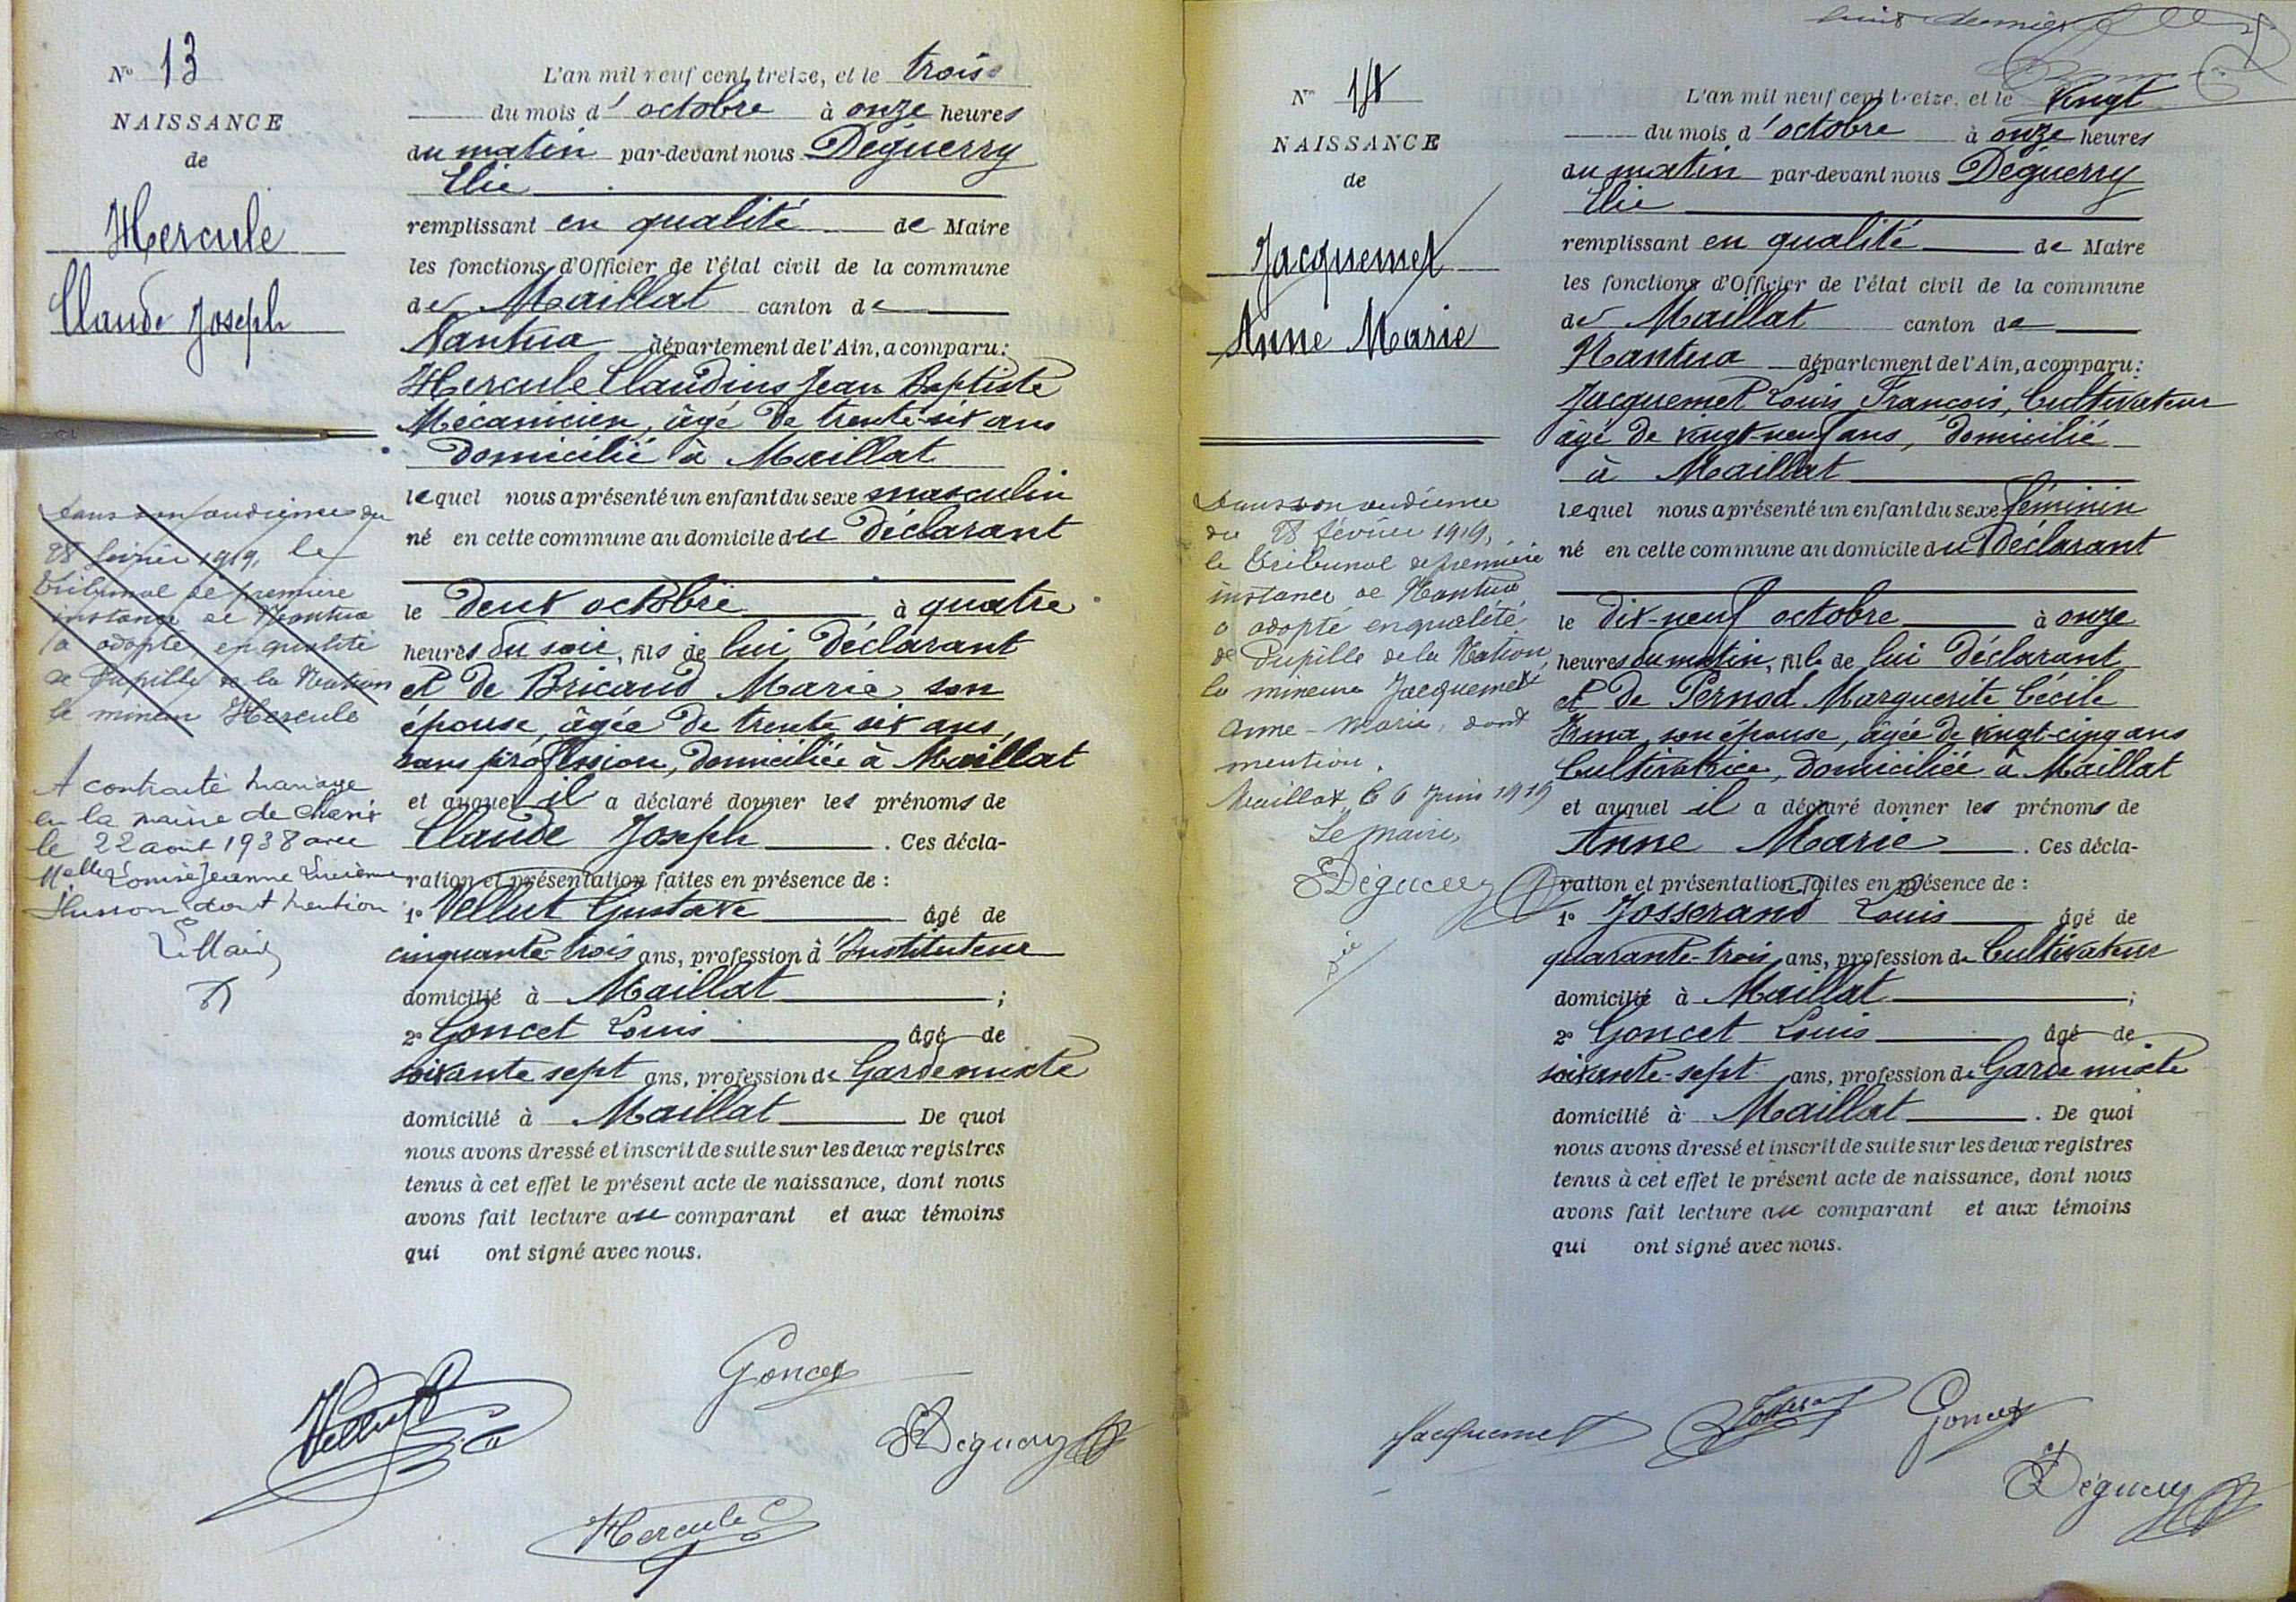 N° 13
NAISSANCE
de
Hercule
Claude Joseph
dans son audience du
28 février 1919, le
Tribunal de première
instance de Nantua
a adopté en qualité
de Pupille de la Nation
le mineur Hercule
A contracté mariage
en la mairie de
le 22 août 1938 avec
Melle Louise Jeanne Lucienne
dont mention
Le Maire
L'an mil neuf cent treize, et le trois
du mois d'octobre à onze heures
du matin par-devant nous Déguerry
Elie
remplissant en qualité de Maire
les fonctions d'Officier de l'état civil de la commune
de Maillat canton de
Nantua département de l'Ain, a comparu:
Hercule Claudius Jean Baptiste
Mécanicien, âgé de trente-six ans
domicilié à Maillat
lequel nous a présenté un enfant du sexe masculin
né en cette commune au domicile du déclarant
le deux octobre à quatre
heures du soir, fils de lui déclarant
et de Bricaud Marie son
épouse, âgée de trente six ans,
sans profession, domiciliée à Maillat
et auquel il a déclaré donner les prénoms de
Claude Joseph . Ces décla-
ration et présentation faites en présence de :
1° Vellut Gustave âgé de
cinquante-trois ans, profession d'Instituteur
domicilié à Maillat ;
2° Goncet Louis âgé de
soixante sept ans, profession de Garde mixte
domicilié à Maillat De quoi
nous avons dressé et inscrit de suite sur les deux registres
tenus à cet effet le présent acte de naissance, dont nous
avons fait lecture au comparant et aux témoins
qui ont signé avec nous.
Vellut
Goncet
EDéguerry
Hercule C
N° 14
NAISSANCE
de
Jacquemet
Anne Marie
Dans son audience
du 28 février 1919,
le Tribunal de première
instance de Nantua
a adopté en qualité
de Pupille de la Nation,
la mineure Jacquemet
Anne-Marie, dont
mention.
Maillat, le 6 Juin 1919
Le Maire,
EDéguerry
L'an mil neuf cent treize, et le vingt
du mois d'octobre à onze heures
du matin par-devant nous Déguerry
Elie
remplissant en qualité de Maire
les fonctions d'Officier de l'état civil de la commune
de Maillat canton de
Nantua département de l'Ain, a comparu:
Jacquemet Louis François, Cultivateur
âgé de vingt-neuf ans, domicilié
à Maillat
lequel nous a présenté un enfant du sexe féminin
né en cette commune au domicile du déclarant
le dix-neuf octobre à onze
heures du matin, fille de lui déclarant
et de Pernod Marguerite Cécile
Irma, son épouse, âgée de vingt-cinq ans
Cultivatrice, domiciliée à Maillat
et auquel il a déclaré donner les prénoms de
Anne Marie . Ces décla-
ration et présentation faites en présence de :
1° Josserand Louis âgé de
quarante-trois ans, profession de Cultivateur
domicilié à Maillat ;
2° Goncet Louis âgé de
soixante-sept ans, profession de Garde mixte
domicilié à Maillat . De quoi
nous avons dressé et inscrit de suite sur les deux registres
tenus à cet effet le présent acte de naissance, dont nous
avons fait lecture au comparant et aux témoins
qui ont signé avec nous.
Jacquemet
Goncet
EDéguerry